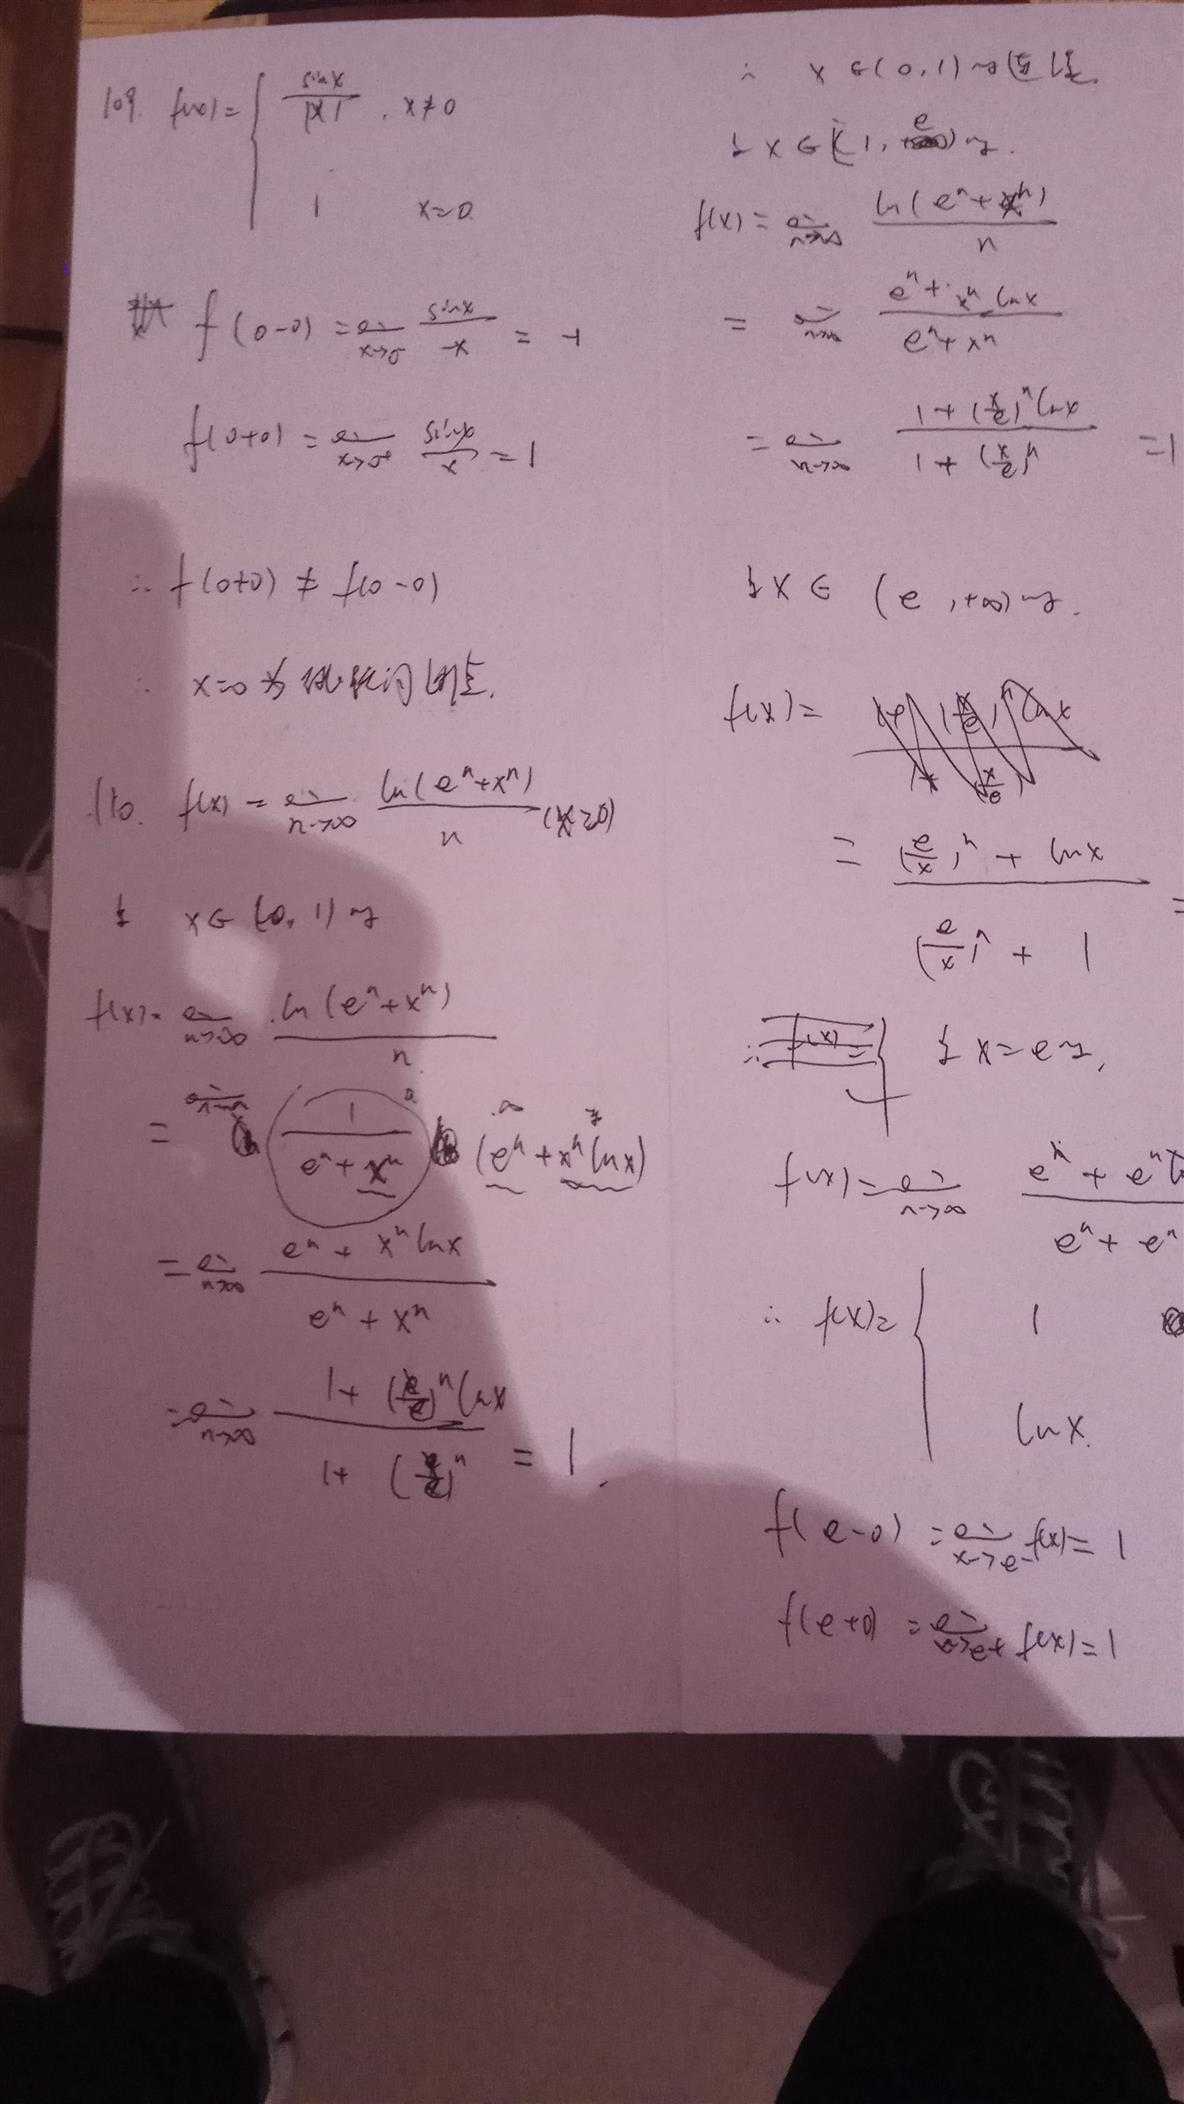 109. f(x) = { sinx/|x| , x≠0
1 x=0
f(0-0) = lim x→0⁻ sinx/-x = -1
f(0+0) = lim x→0⁺ sinx/x = 1
∴ f(0+0) ≠ f(0-0)
∴ x=0为跳跃间断点.
110. f(x) = lim n→∞ ln(eⁿ+xⁿ)/n (x≥0)
当 x∈(0,1)时
f(x)= lim n→∞ ln(eⁿ+xⁿ)/n
= lim n→∞ 1/(eⁿ+xⁿ) (eⁿ+xⁿlnx)
= lim n→∞ (eⁿ+xⁿlnx)/(eⁿ+xⁿ)
= lim n→∞ (1+(x/e)ⁿlnx)/(1+(x/e)ⁿ) = 1.
∴ x∈(0,1)时连续
当x∈[1,e)时.
f(x) = lim n→∞ ln(eⁿ+xⁿ)/n
= lim n→∞ (eⁿ+xⁿlnx)/(eⁿ+xⁿ)
= lim n→∞ (1+(x/e)ⁿlnx)/(1+(x/e)ⁿ) =1
当x∈(e,+∞)时.
f(x)=
= ((e/x)ⁿ+lnx)/((e/x)ⁿ+1) =
∴ f(x)= { 当x=e时,
f(x)= lim n→∞ (eⁿ+eⁿl/(eⁿ+eⁿ
∴ f(x)= { 1
lnx.
f(e-0) = lim x→e- f(x)=1
f(e+0) = lim x→e+ f(x)=1